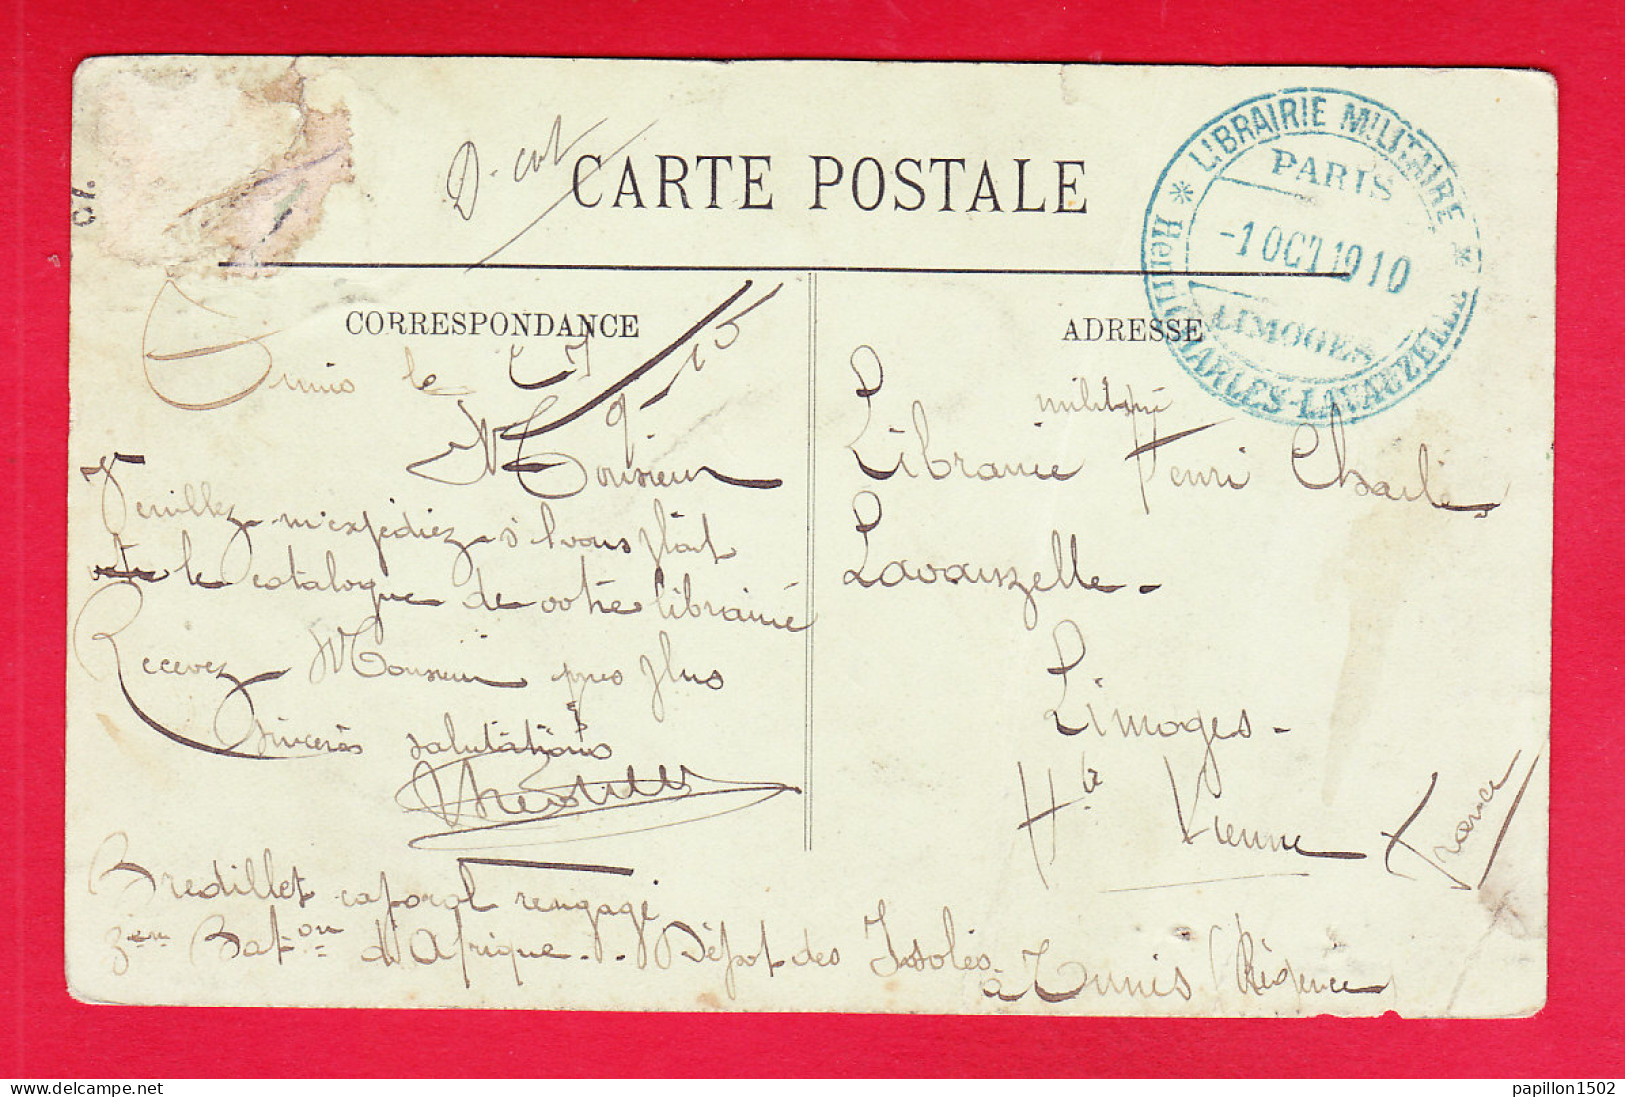 D. cat
CARTE POSTALE
* LIBRAIRIE MILITAIRE *
PARIS
-1 OCT 1910
LIMOGES
Henri CHARLES-LAVAUZELLE
CORRESPONDANCE
Tunis le 27/9-10
Monsieur
Veuillez m'expédiez s'l vous plait
le catalogue de votre librairie
Recevez Monsieur mes plus
sincères salutations
Bredillet caporal rengagé
3em Bat-on d'Afrique.. Dépot des Isolés
à Tunis (Régence
ADRESSE
militaire
Librairie Henri Charles
Lavauzelle -
Limoges -
Hte Vienne
France
delcampe.net
papillon1502